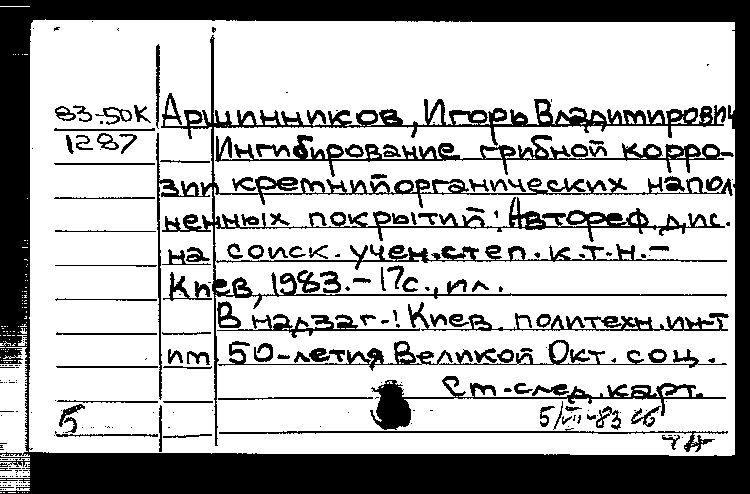 83-50К
1287
Аршинников, Игорь Владимирович
Ингибирование грибной корро-
зии кремнийорганических напол-
ненных покрытий: Автореф. дис.
на соиск. учен. степ. к.т.н. –
Киев, 1983. – 17с., ил.
В надзаг.: Киев. политехн. ин-т
им 50-летия Великой Окт. соц.
См. след. карт.
5